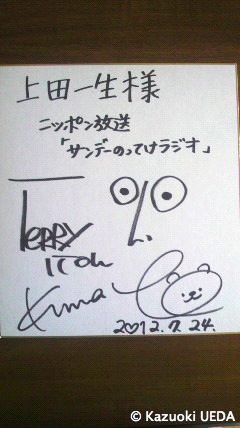 上田一生様
ニッポン放送
「サンデーのってけラジオ」
Terry
ITOH
Kuma
2012.7.24.
© Kazuoki UEDA